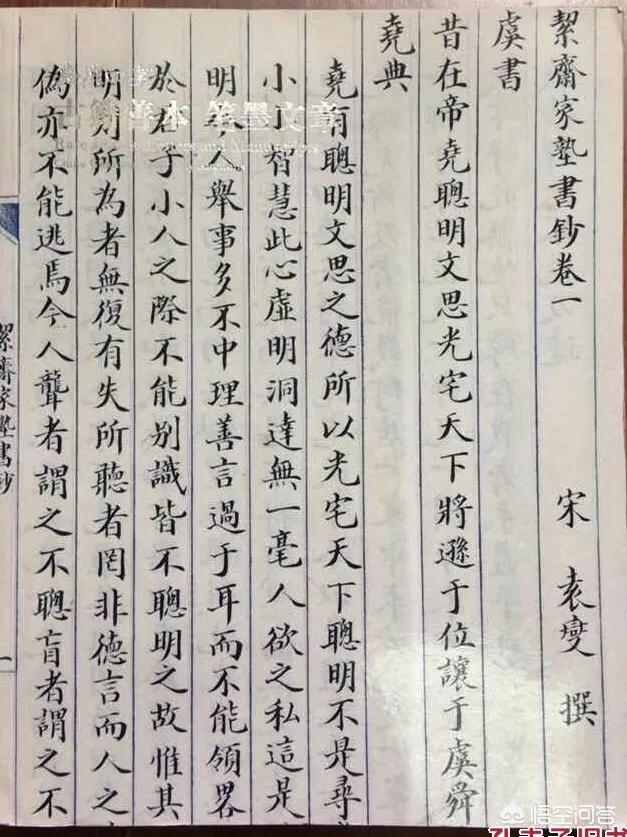 絜齋家塾書鈔卷一 宋 袁燮 撰
虞書
昔在帝堯聰明文思光宅天下將遜于位讓于虞舜
堯典
堯有聰明文思之德所以光宅天下聰明不是尋
小小智慧此心虛明洞達無一毫人欲之私這是
明今人舉事多不中理善言過于耳而不能領畧
於君子小人之際不能别識皆不聰明之故惟其
明則所為者無復有失所聽者罔非德言而人之
偽亦不能逃焉今人聾者謂之不聰盲者謂之不
絜齋家塾書鈔
一
古籍善本 筆墨文章
悟空问答